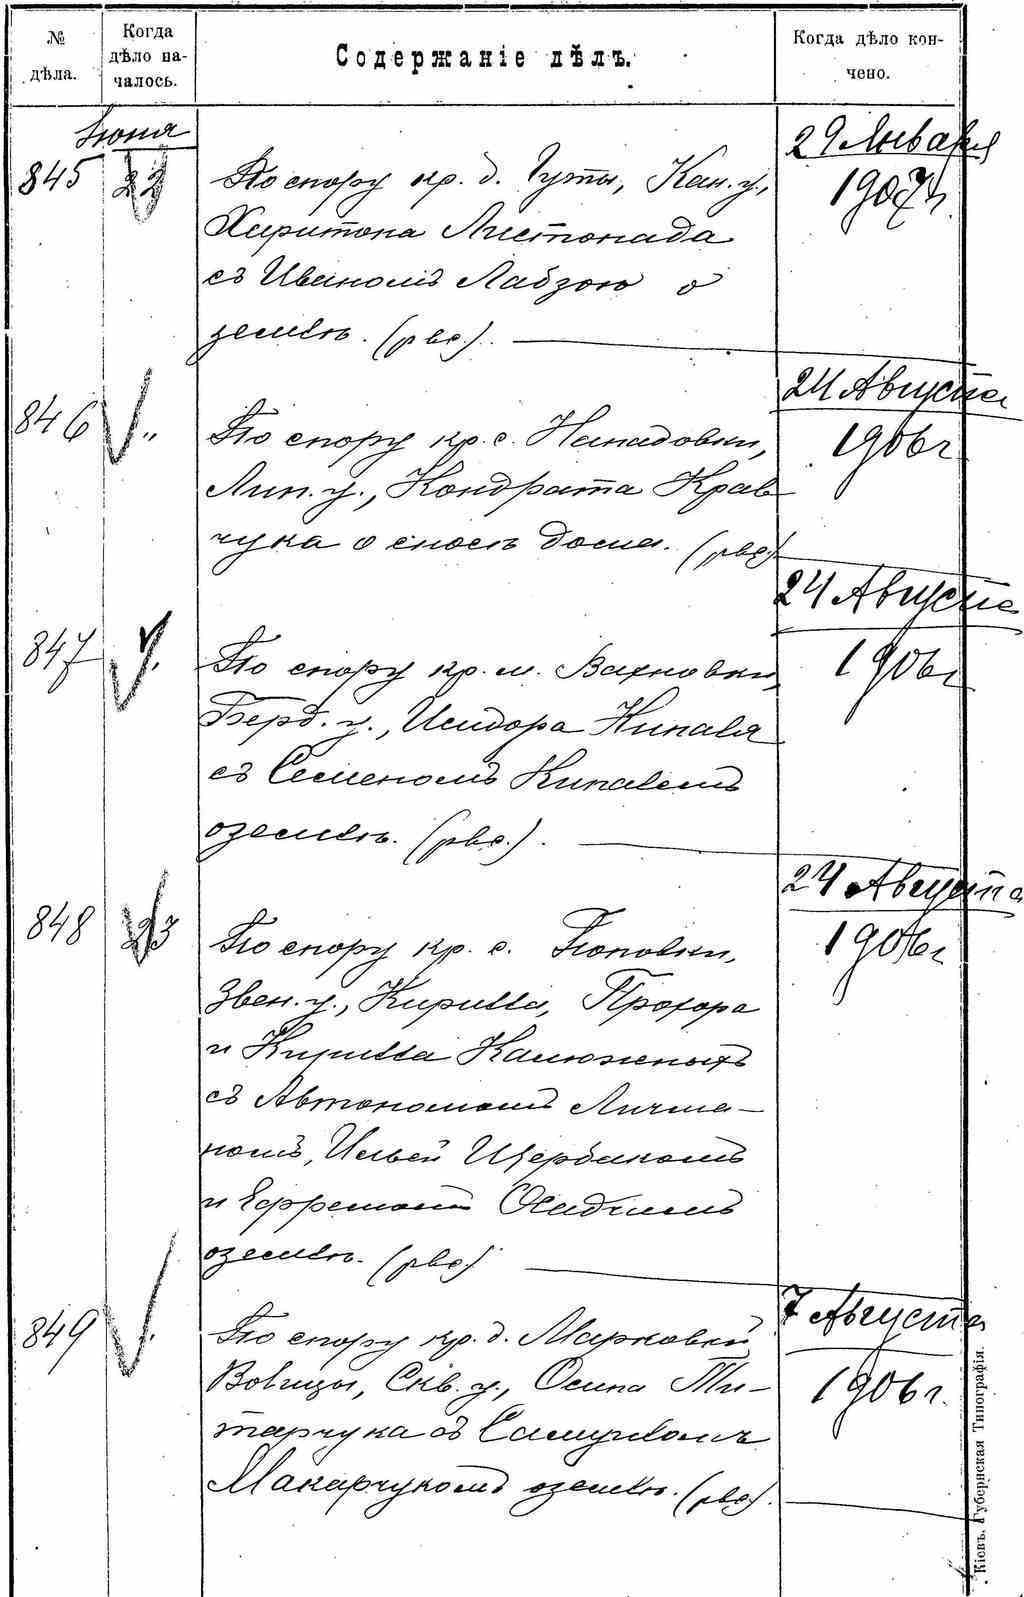 № дѣла.
Когда дѣло на-
чалось.
Содержаніе дѣлъ.
Когда дѣло кон-
чено.
Іюня
845
22
По спору кр. д. Гуты, Кан. у.,
Харитона Листопада
съ Иваномъ Лабзою о
землѣ. (рвс.).
29 Января
1907 г.
846
"
По спору кр. с. Нападовки,
Лип. у., Кондрата Крав
чука о сносѣ дома. (рвс.)
24 Августа
1906 г.
847
"
По спору кр. м. Вахновки,
Берд. у., Исидора Кипаля
съ Семеномъ Кипалемъ
о землѣ. (рвс.).
24 Августа
1906 г.
848
23
По спору кр. с. Поповки,
Звен. у., Кирилла, Прохора
и Кирилла Калюжныхъ
съ Автономомъ Личма-
номъ, Ильей Щербакомъ
и Ефремомъ Осадчимъ
о землѣ. (рвс.)
24 Августа
1906 г.
849
"
По спору кр. д. Марковой
Волицы, Скв. у., Осипа Ти-
тарчука съ Самуиломъ
Макарчукомъ о землѣ. (рвс.).
7 Августа
1906 г.
Кіевъ. Губернская Типографія.